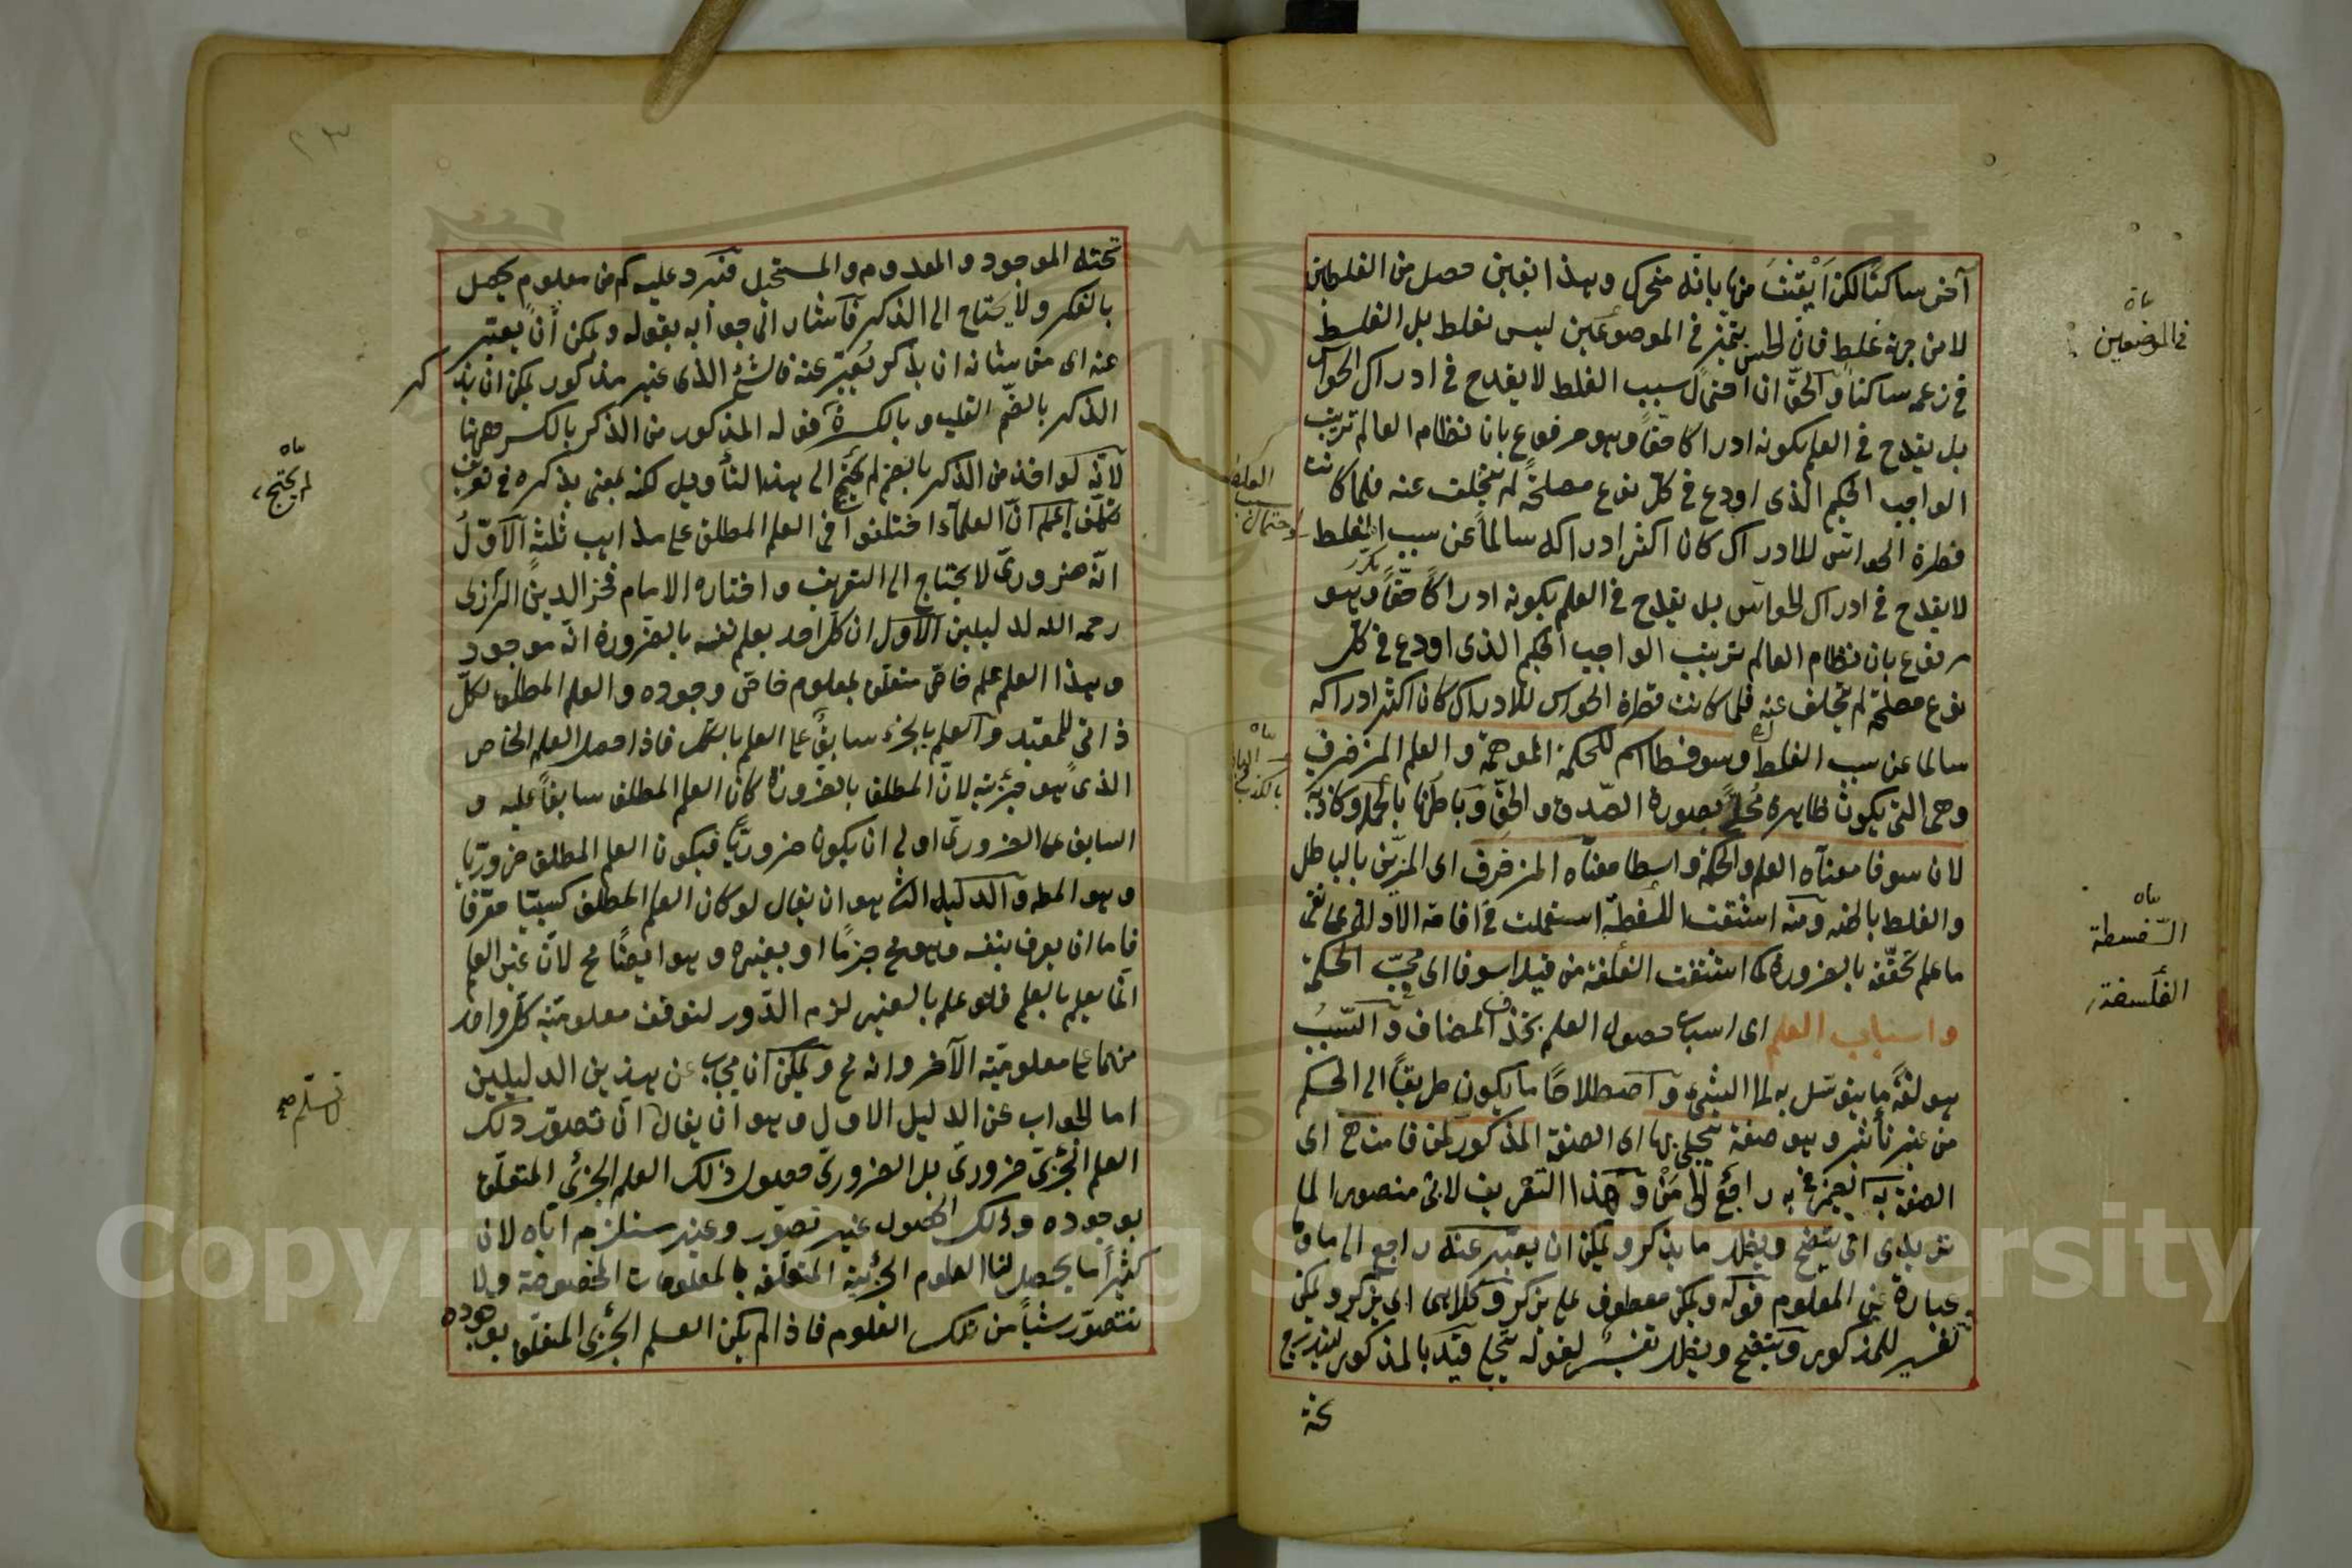 آخر ساكنا لكن أيقنت منها بانّه متحرك وبهذا اليقين حصل من الغلطين
لا من جهة غلط فان الحس بتميز في الموضوعين ليس بغلط بل الغلط
في زعمه ساكنا والحقّ ان احتمال سبب الغلط لا يقدح في ادراك الحواس
بل يقدح في العلم بكونه ادراكا حقاً وهو مرفوع بان نظام العالم ترتيب
الواجب الحكيم الذى اودع في كلّ نوع مصلحةً لم تتخلف عنه فلما كانت
فطرة الحواسّ للادراك كان اكثر ادراكه سالماً عن سبب الغلط
لا يقدح في ادراك الحواس بل يقدح في العلم بكونه ادراكاً حقّاً وهو
مرفوع بان نظام العالم ترتيب الواجب الحكيم الذى اودع في كل
نوع مصلحة لم تتخلف عنه فلما كانت فطرة الحواس للادراك كان اكثر ادراكه
سالما عن سبب الغلط وسوفسطا اسم للحكمة المموهة والعلم المزخرف
وهى التى يكون ظاهره بصورة الصّدق والحقّ وباطنها وكاذبة
لان سوفا معناه العلم والحكمة واسطا معناه المزخرف اى المزيّن بالباطل
والغلط باطنه ومنه اشتقت السفسطة استعملت في اقامة الادلة على نفى
ما علم تحقّقه بالضرورة كما اشتقت الفلسفة من فيلاسوفا اى محبّ الحكمة
واسباب العلم اى اسباب حصول العلم بحذف المضاف والسّببُ
هو لغةً ما يتوسّل به الى الشىء واصطلاحًا ما يكون طريقاً الى الحكم
من غير تأثير وهو صفة يتجلى بها اى الصفة المذكور لمن قامت هى اى
الصفة به الضمير في به راجع الى مَنْ وهذا التعريف لابى منصور الما
تريدى اى يتضح ويظهر ما يذكر ويمكن ان يعبّر عنه راجع الى ما وما
عبارة عن المعلوم قوله ويمكن معطوف على يذكر وكلاهما اى يذكر ويمكن
تفسير للمذكور ويتضح ويظهر تفسيرٌ لقوله يتجلى قيّد بالمذكور ليندرج
تحته
في الموضعين
السّفسطة
الفلسفة
تحته الموجود والمعدوم والمستحيل فيرد عليه كم من معلوم يحصل
بالفكر ولا يحتاج الى الذكر فاشار الى جوابه بقوله ويمكن أن يعبّر
عنه اى من شانه ان يذكر ويعبّر عنه فالشئ الذى غير مذكور يمكن ان يذكر
الذكر بالضّم القلب وبالكسرة قوله المذكور من الذكر بالكسر ههنا
لانّه لو اخذ من الذكر بالضم لم يحتج الى هذا التأويل لكنه بمعنى يذكره في تعرف
تكلّف اعلم انّ العلماء اختلفوا في العلم المطلق على مذاهب ثلثة الاوّل
انّه ضرورىّ لا يحتاج الى التعريف واختاره الامام فخر الدين الرازى
رحمه الله لدليلين الاول ان كل احد يعلم نفسه بالضرورة انّه موجود
وهذا العلم علم خاصّ متعلّق بمعلوم خاصّ وجوده والعلم المطلق لكلّ
ذاتىّ للمقيد والعلم بالجزء سابقٌ على العلم بالكلّ فاذا حصل العلم الخاص
الذى هو جزئية لانّ المطلق بالضرورة كان العلم المطلق سابقاً عليه و
السابق على الضرورىّ اولى ان يكون ضروريّا فيكون العلم المطلق ضروريّا
وهو المط والدليل الثا هو ان يقال لو كان العلم المطلق كسبيّا معرّفا
فاما ان يعرف بنفسه وهو مح جزمًا او بغيره وهو ايضًا مح لانّ غير العلم
انّما يعلم بالعلم فلو علم بالغير لزم الدّور لتوقف معلوميّة كلّ واحد
منهما على معلوميّة الآخر وانه مح ويمكن ان يجاب عن هذين الدليلين
اما الجواب عن الدليل الاول وهو أن يقال انّ تصوّر ذلك
العلم الجزئىّ ضرورىّ بل الضرورىّ حصول ذلك العلم الجزئىّ المتعلّق
بوجوده وذلك الحصول غير تصوّر وغير مستلزم ايّاه لان
كثيرًا ما يحصل لنا العلوم الجزئية المتعلّقة بالمعلومات المخصوصة ولا
نتصوّر شيأً من تلك العلوم فاذا لم يكن العلم الجزئى المتعلّق بوجوده
لم يحتج
لا نسلّم صح